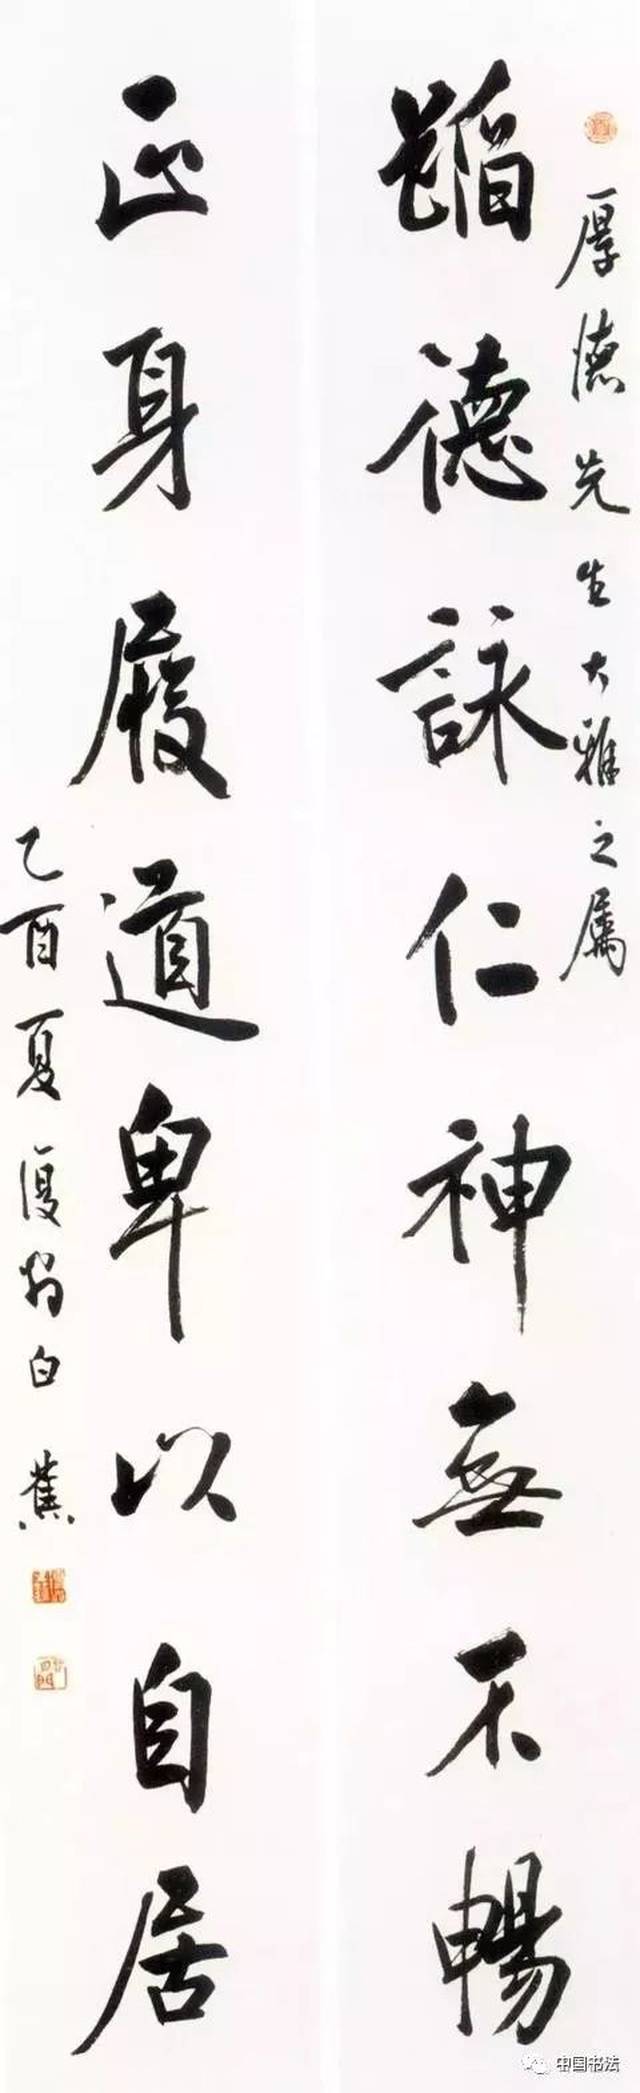 厚德先生大雅之屬
蹈德詠仁神無不暢
正身履道卑以自居
乙酉夏復翁白蕉
中国书法